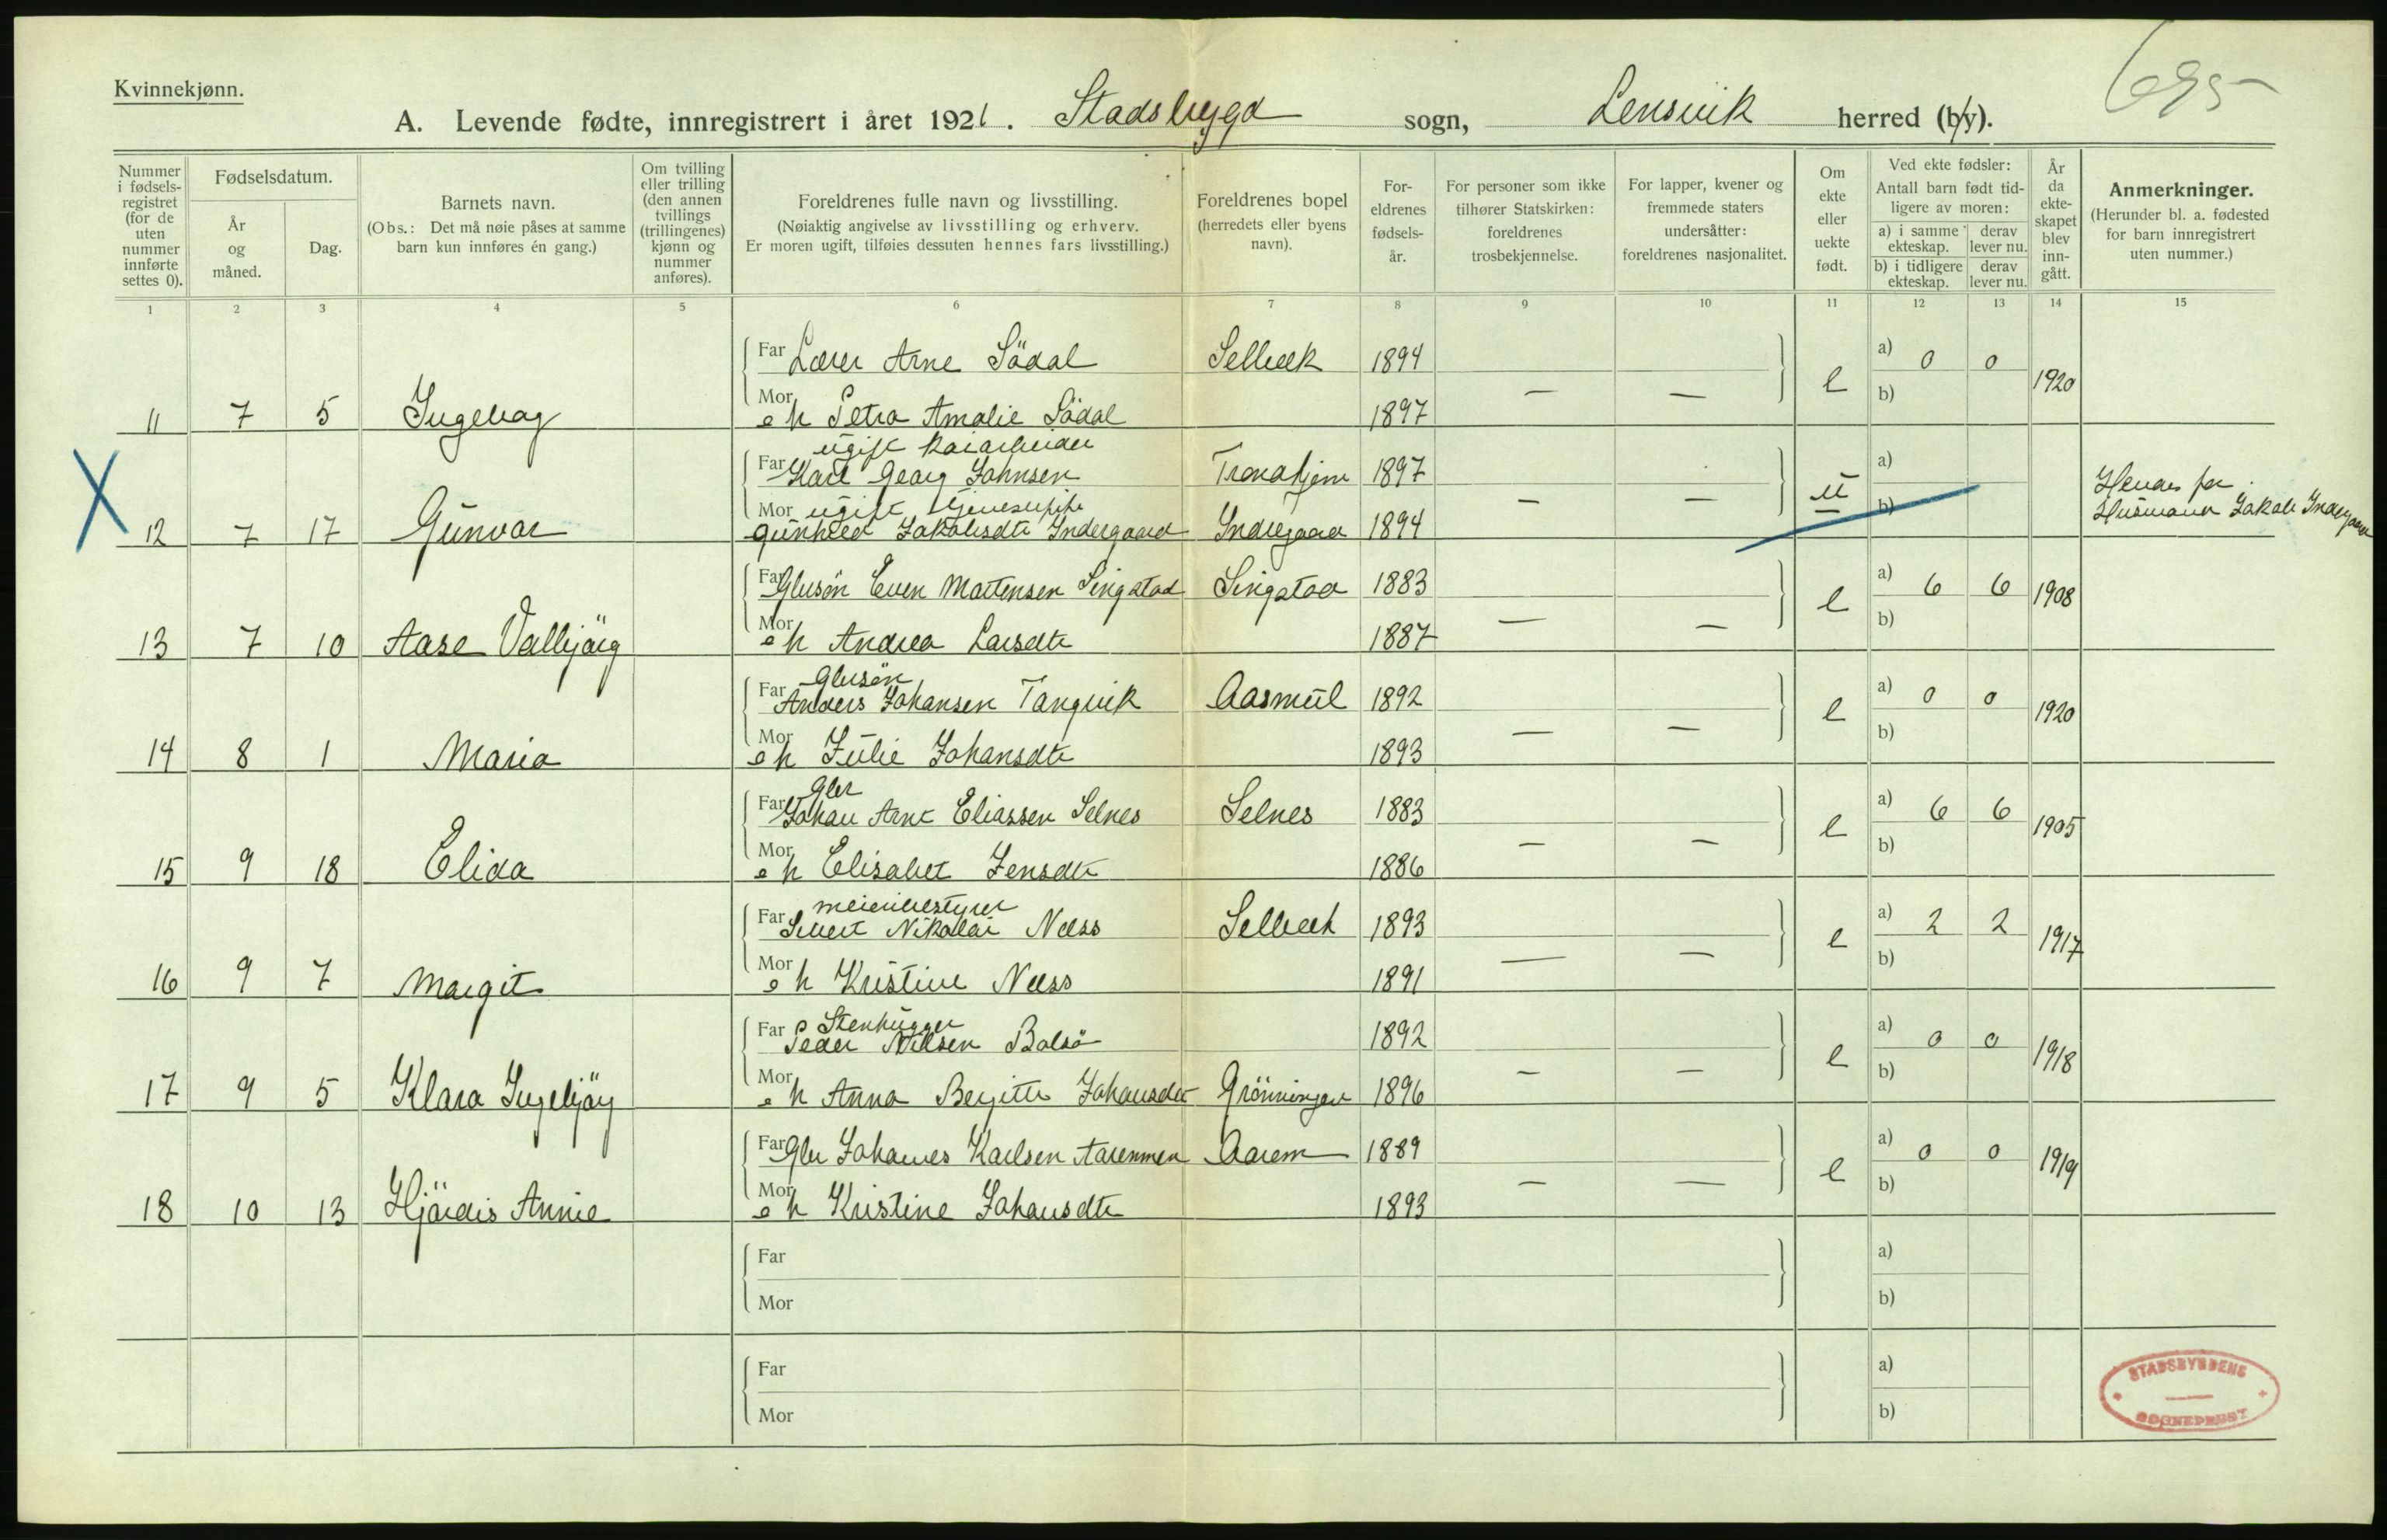 Kvinnekjønn.
695
A. Levende fødte, innregistrert i året 1921. Stadsbygd sogn, Lensvik herred (by).
Nummer i fødselsregistret (for de uten nummer innførte settes 0).
Fødselsdatum.
År og måned.
Dag.
Barnets navn.
(Obs.: Det må nøie påses at samme barn kun innføres én gang.)
Om tvilling eller trilling (den annen tvillings (trillingenes) kjønn og nummer anføres).
Foreldrenes fulle navn og livsstilling.
(Nøiaktig angivelse av livsstilling og erhverv.
Er moren ugift, tilføies dessuten hennes fars livsstilling.)
Foreldrenes bopel (herredets eller byens navn).
Foreldrenes fødselsår.
For personer som ikke tilhører Statskirken: foreldrenes trosbekjennelse.
For lapper, kvener og fremmede staters undersåtter: foreldrenes nasjonalitet.
Om ekte eller uekte født.
Ved ekte fødsler:
Antall barn født tidligere av moren:
a) i samme ekteskap. derav lever nu.
b) i tidligere ekteskap. derav lever nu.
År da ekteskapet blev inngått.
Anmerkninger.
(Herunder bl. a. fødested for barn innregistrert uten nummer.)
1 2 3 4 5 6 7 8 9 10 11 12 13 14 15
Far Lærer Arne Södal Selbæk 1894 a) 0 0
11 7 5 Ingebjørg Mor e h Petra Amalie Södal 1897 — — e b) 1920
ugift kaiarbeider
Far Karl Georg Johnsen Trondhjem 1897 a)
X Mor ugift
12 7 17 Gunvor Gunhild Jakobsdtr Indergaard Indregaard 1894 — — u b)
Hendes far
Husmann Jakob Indergaard
Far Gbrsøn Even Martensen Singstad Singstad 1883 a) 6 6
13 7 10 Aase Valbjörg Mor e h Andrea Larsdtr 1887 — — e b) 1908
Gbrsøn
Far Anders Johansen Tangvik Aasmul 1892 a) 0 0
14 8 1 Maria Mor e h Julie Johansdtr 1893 — — e b) 1920
Gbr
Far Johan Arnt Eliassen Selnes Selnes 1883 a) 6 6
15 9 18 Elida Mor e h Elisabet Jensdtr 1886 — — e b) 1905
meieribestyrer
Far Sivert Nikolai Næss Selbæk 1893 a) 2 2
16 9 7 Margit Mor e h Kristine Næss 1891 — — e b) 1917
Stenhugger
Far Peder Nilsen Balsö 1892 a) 0 0
17 9 5 Klara Ingebjörg Mor e h Anna Bergitte Johansdtr Grönningen 1896 — — e b) 1918
Far Gbr Johannes Karlsen Aarenmen Aarem 1889 a) 0 0
18 10 13 Hjördis Annie Mor e h Kristine Johansdtr 1893 — — e b) 1919
Far a)
Mor b)
Far a)
Mor b)
STADSBYGDENS
SOGNEPREST